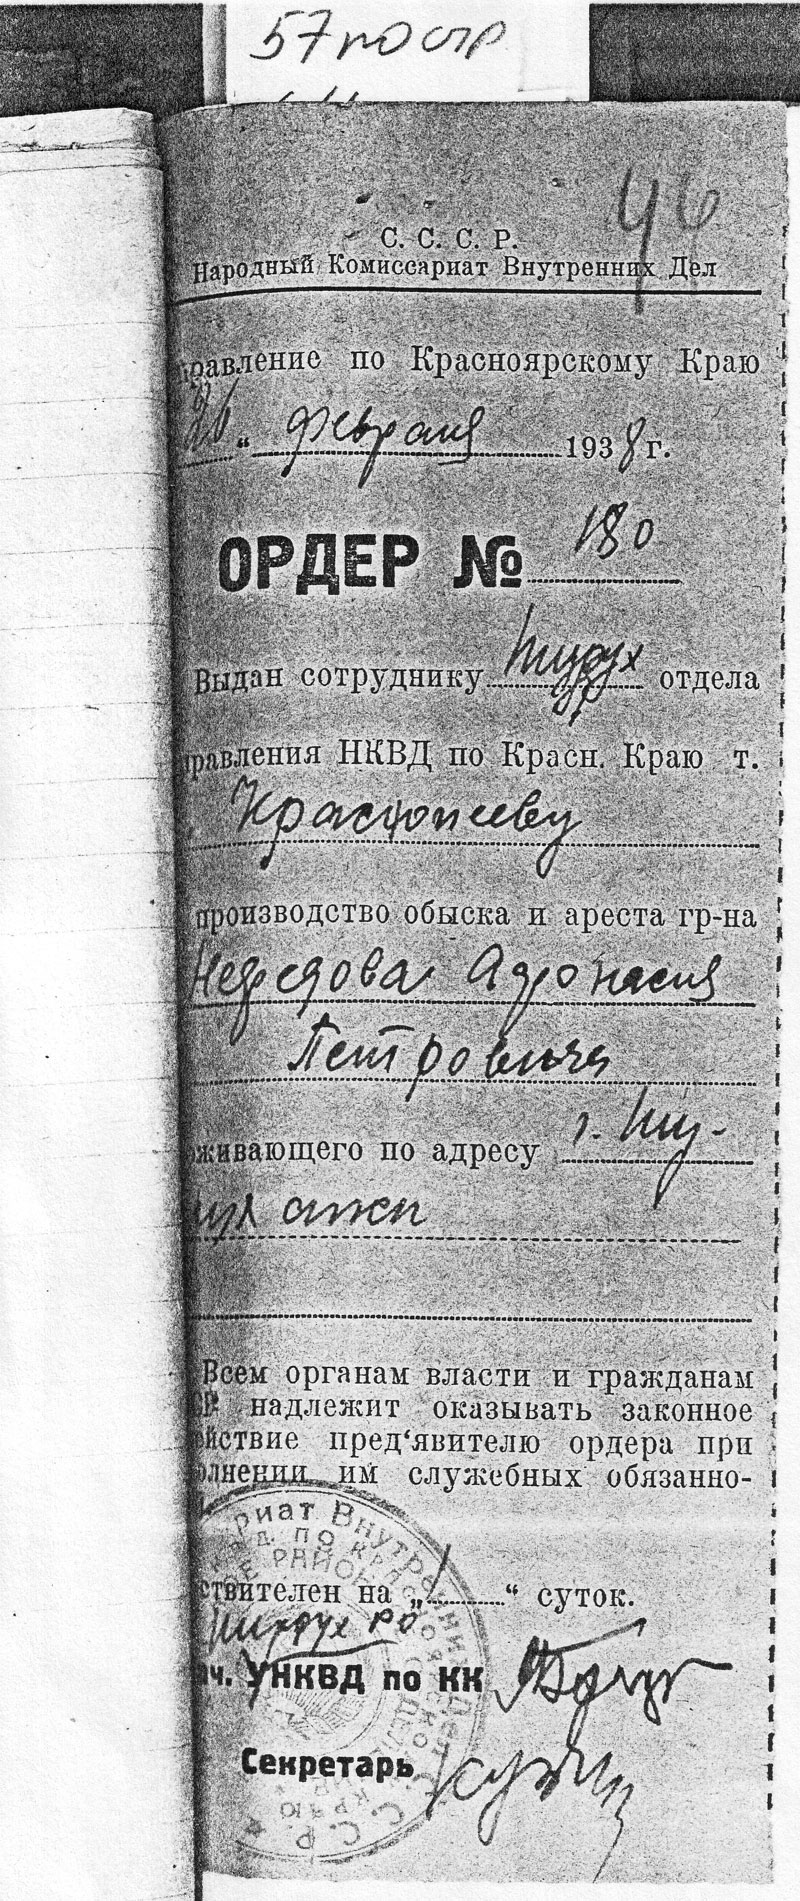 57 по стр
46
С. С. С. Р.
Народный Комиссариат Внутренних Дел
правление по Красноярскому Краю
26 “ февраля 1938 г.
ОРДЕР № 180
Выдан сотруднику отдела
правления НКВД по Красн. Краю т.
производство обыска и ареста гр-на
Нефедова Афонасия
Петровича
оживающего по адресу г.
Всем органам власти и гражданам
СР надлежит оказывать законное
ействие пред‘явителю ордера при
олнении им служебных обязанно-
ствителен на „1“ суток.
РО
ач. УНКВД по КК
Секретарь